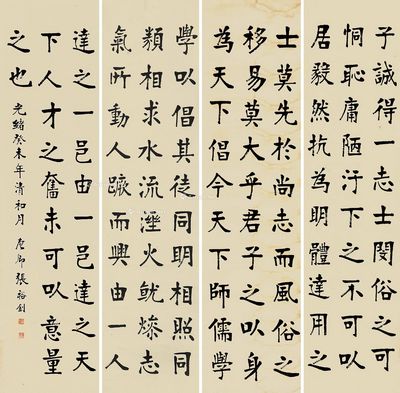 子誠得一志士閔俗之可
恫恥庸陋汙下之不可以
居毅然抗為明體達用之
士莫先於尚志而風俗之
移易莫大乎君子之以身
為天下倡今天下師儒學
學以倡其徒同明相照同
類相求水流溼火就燥志
氣所動人蹶而興由一人
達之一邑由一邑達之天
下人才之奮未可以意量
之也
光緒癸未年清和月 廉卿張裕釗